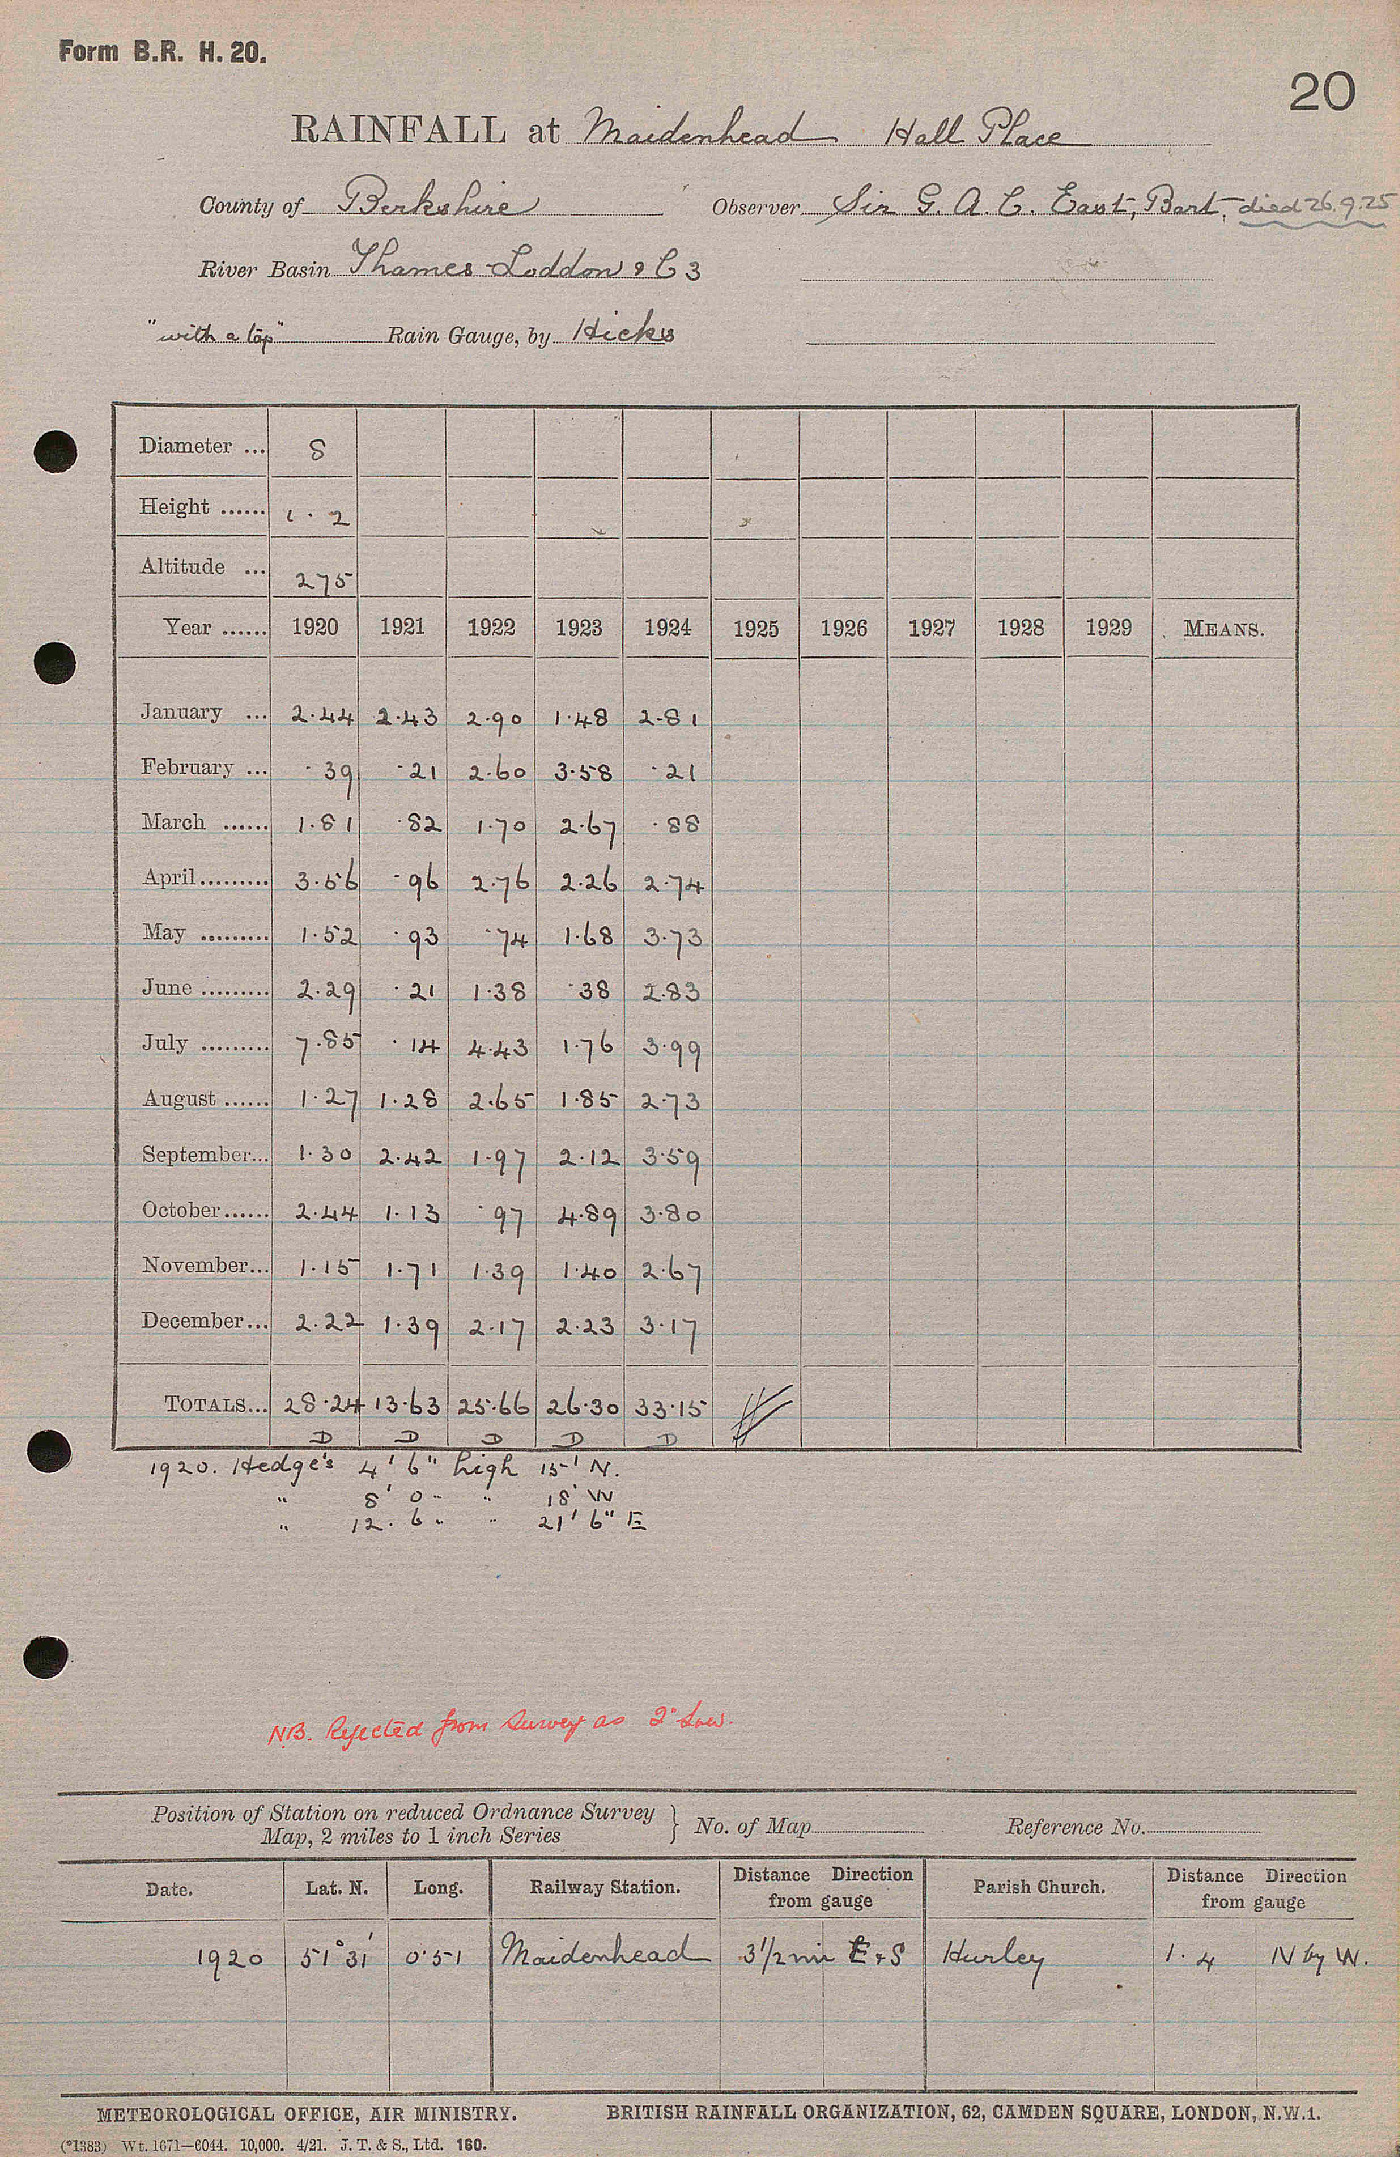 Form B.R. H. 20.
20
RAINFALL at Maidenhead Hall Place
County of Berkshire Observer Sir G. A. C. East, Bart, died 26.9.25
River Basin Thames-Loddon & C 3
"with a tap" Rain Gauge, by Hicks
Diameter ... 8
Height ...... 1·2
Altitude ... 275
Year ...... 1920 1921 1922 1923 1924 1925 1926 1927 1928 1929 MEANS.
January ... 2·44 2·43 2·90 1·48 2·81
February ... ·39 ·21 2·60 3·58 ·21
March ...... 1·81 ·82 1·70 2·67 ·88
April ......... 3·56 ·96 2·76 2·26 2·74
May ......... 1·52 ·93 ·74 1·68 3·73
June ......... 2·29 ·21 1·38 ·38 2·83
July ......... 7·85 ·14 4·43 1·76 3·99
August ...... 1·27 1·28 2·65 1·85 2·73
September... 1·30 2·42 1·97 2·12 3·59
October...... 2·44 1·13 ·97 4·89 3·80
November... 1·15 1·71 1·39 1·40 2·67
December... 2·22 1·39 2·17 2·23 3·17
TOTALS... 28·24 13·63 25·66 26·30 33·15
D D D D D
1920. Hedge's 4' 6" high 15' N.
" 8' 0 " " 18' W
" 12. 6 " " 21' 6" E
NB. Rejected from Survey as 2" Low.
Position of Station on reduced Ordnance Survey Map, 2 miles to 1 inch Series } No. of Map Reference No.
Date. Lat. N. Long. Railway Station. Distance Direction from gauge Parish Church. Distance Direction from gauge
1920 51° 31' 0·51 Maidenhead 3½ mi E & S Hurley 1·4 N by W.
METEOROLOGICAL OFFICE, AIR MINISTRY. BRITISH RAINFALL ORGANIZATION, 62, CAMDEN SQUARE, LONDON, N.W.1.
(*1383) Wt. 1671—6044. 10,000. 4/21. J. T. & S., Ltd. 160.